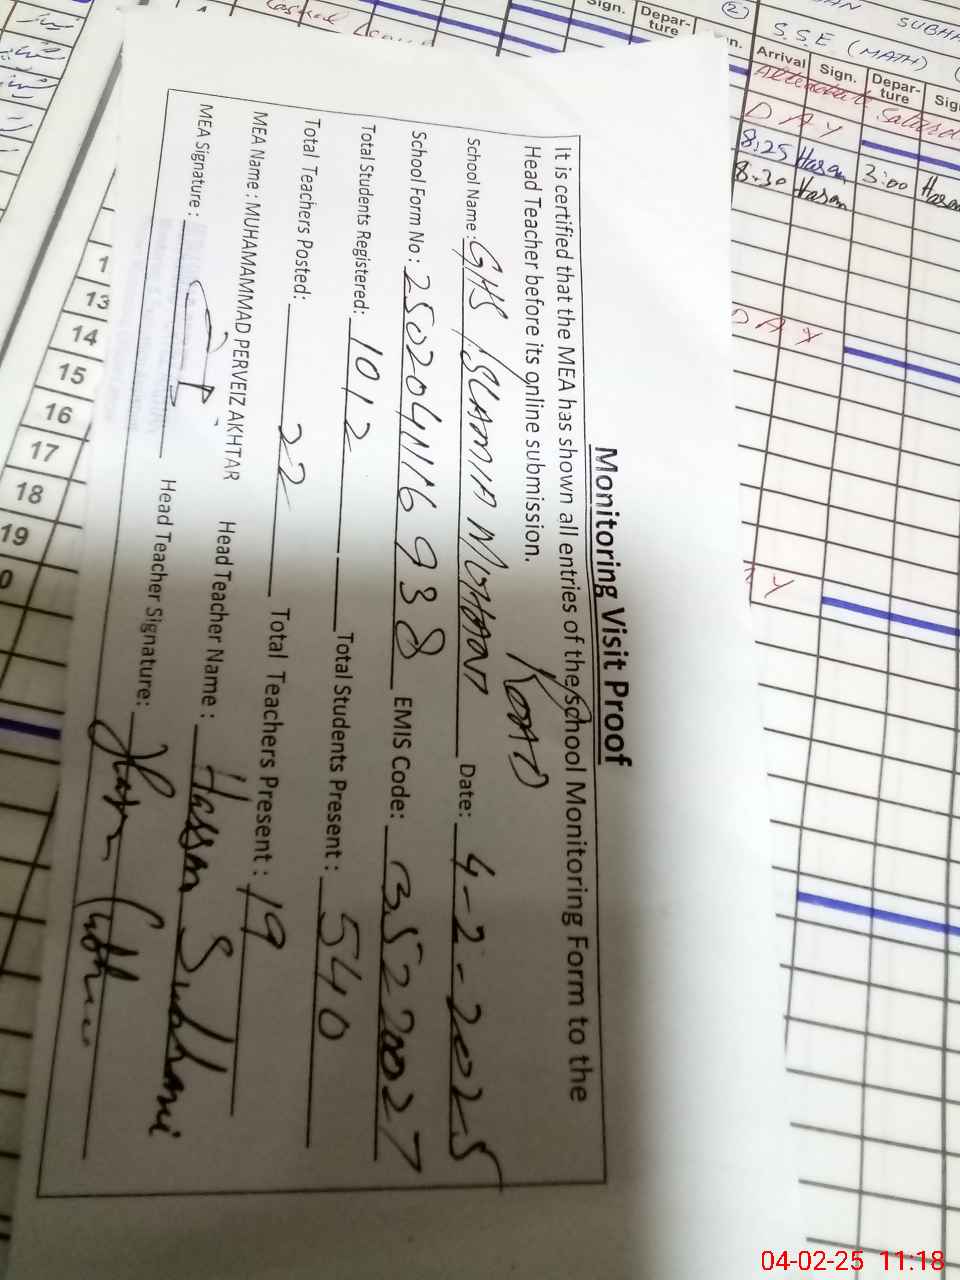 Monitoring Visit Proof
It is certified that the MEA has shown all entries of the School Monitoring Form to the
Head Teacher before its online submission.
Road
School Name: GHS ISLAMIA Multan Date: 4-2-2025
School Form No: 2502041116938 EMIS Code: 35220027
Total Students Registered: 1012 Total Students Present: 540
Total Teachers Posted: 22 Total Teachers Present: 19
MEA Name: MUHAMAMMAD PERVEIZ AKHTAR Head Teacher Name: Hassan Subhani
MEA Signature: Head Teacher Signature:
Casual Leave
Sign. Depar-ture
2
SUBHA
S.S.E (MATH)
Arrival Sign. Depar-ture Sig
DAY
8:25 Hasan 3:00 Hasan
8:30 Hasan
DAY
Y
1
13
14
15
16
17
18
19
0
04-02-25 11:18